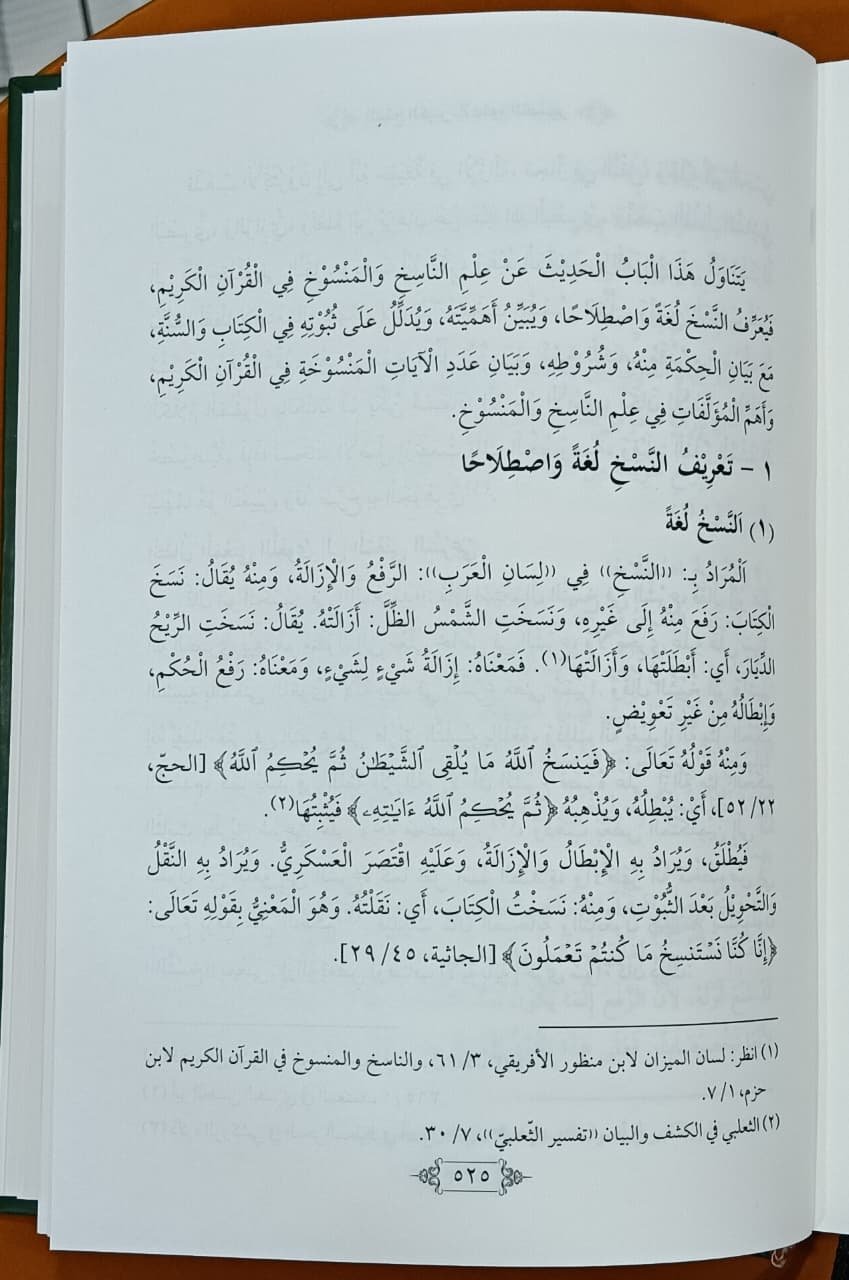 يَتَنَاوَلُ هَذَا الْبَابُ الْحَدِيْثَ عَنْ عِلْمِ النَّاسِخِ وَالْمَنْسُوْخِ فِي الْقُرْآنِ الْكَرِيْمِ،
فَيُعَرِّفُ النَّسْخَ لُغَةً وَاصْطِلَاحًا، وَيُبَيِّنُ أَهَمِّيَّتَهُ، وَيُدَلِّلُ عَلَى ثُبُوْتِهِ فِي الْكِتَابِ وَالسُّنَّةِ،
مَعَ بَيَانِ الْحِكْمَةِ مِنْهُ، وَشُرُوْطِهِ، وَبَيَانِ عَدَدِ الْآيَاتِ الْمَنْسُوْخَةِ فِي الْقُرْآنِ الْكَرِيْمِ،
وَأَهَمِّ الْمُؤَلَّفَاتِ فِي عِلْمِ النَّاسِخِ وَالْمَنْسُوْخِ.
١ - تَعْرِيْفُ النَّسْخِ لُغَةً وَاصْطِلَاحًا
(١) اَلنَّسْخُ لُغَةً
اَلْمُرَادُ بِـ: ((النَّسْخِ)) فِي ((لِسَانِ الْعَرَبِ)): الرَّفْعُ وَالْإِزَالَةُ، وَمِنْهُ يُقَالُ: نَسَخَ
الْكِتَابَ: رَفَعَ مِنْهُ إِلَى غَيْرِهِ، وَنَسَخَتِ الشَّمْسُ الظِّلَّ: أَزَالَتْهُ. يُقَالُ: نَسَخَتِ الرِّيْحُ
الدِّيَارَ، أَي: أَبْطَلَتْهَا، وَأَزَالَتْهَا(١). فَمَعْنَاهُ: إِزَالَةُ شَيْءٍ لِشَيْءٍ، وَمَعْنَاهُ: رَفْعُ الْحُكْمِ،
وَإِبْطَالُهُ مِنْ غَيْرِ تَعْوِيْضٍ.
وَمِنْهُ قَوْلُهُ تَعَالَى: ﴿فَيَنسَخُ ٱللَّهُ مَا يُلْقِى ٱلشَّيْطَٰنُ ثُمَّ يُحْكِمُ ٱللَّهُ﴾ [الحجّ،
٥٢/٢٢]، أَيْ: يُبْطِلُهُ، وَيُذْهِبُهُ ﴿ثُمَّ يُحْكِمُ ٱللَّهُ ءَايَٰتِهِۦ﴾ فَيُثْبِتُهَا(٢).
فَيُطْلَقُ، وَيُرَادُ بِهِ الْإِبْطَالُ وَالْإِزَالَةُ، وَعَلَيْهِ اقْتَصَرَ الْعَسْكَرِيُّ. وَيُرَادُ بِهِ النَّقْلُ
وَالتَّحْوِيْلُ بَعْدَ الثُّبُوْتِ، وَمِنْهُ: نَسَخْتُ الْكِتَابَ، أَي: نَقَلْتُهُ. وَهُوَ الْمَعْنِيُّ بِقَوْلِهِ تَعَالَى:
﴿إِنَّا كُنَّا نَسْتَنسِخُ مَا كُنتُمْ تَعْمَلُونَ﴾ [الجاثية، ٤٥/ ٢٩].
(١) انظر: لسان الميزان لابن منظور الأفريقي، ٣/ ٦١، والناسخ والمنسوخ في القرآن الكريم لابن
حزم، ١/ ٧.
(٢) الثعلبي في الكشف والبيان ((تفسير الثّعلبيّ))، ٧/ ٣٠.
٥٢٥